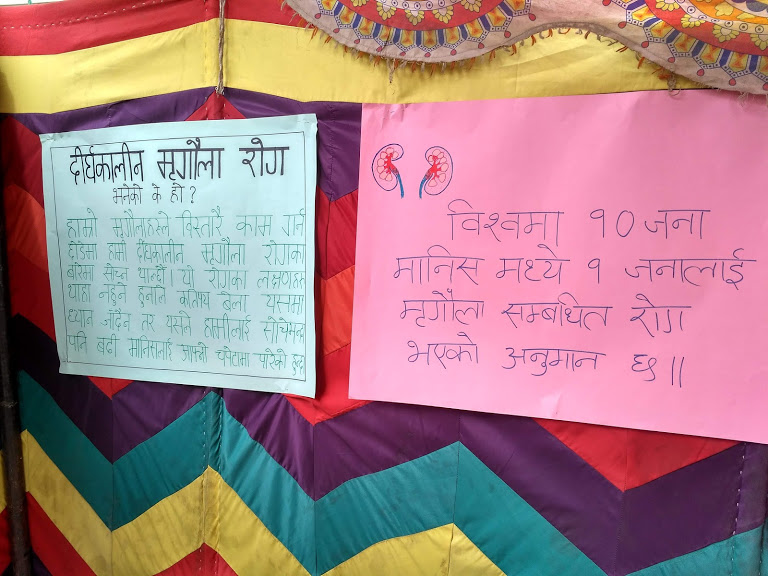 दीर्घकालीन मृगौला रोग
भनेको के हो ?
हाम्रो मृगौलाहरुले विस्तारै काम गर्न
छोडेमा हामी दीर्घकालीन मृगौला रोगका
बारेमा सोच्न थाल्दौं । यो रोगका लक्षणहरु
थाहा नहुने हुनाले कतिपय बेला यसमा
ध्यान जाँदैन तर यसले हामीलाई सोचेभन्दा
पनि बढी मानिसलाई आफ्नो चपेटामा पारेको हुन्छ
विश्वमा १० जना
मानिस मध्ये १ जनालाई
मृगौला सम्बधित रोग
भएको अनुमान छ ॥